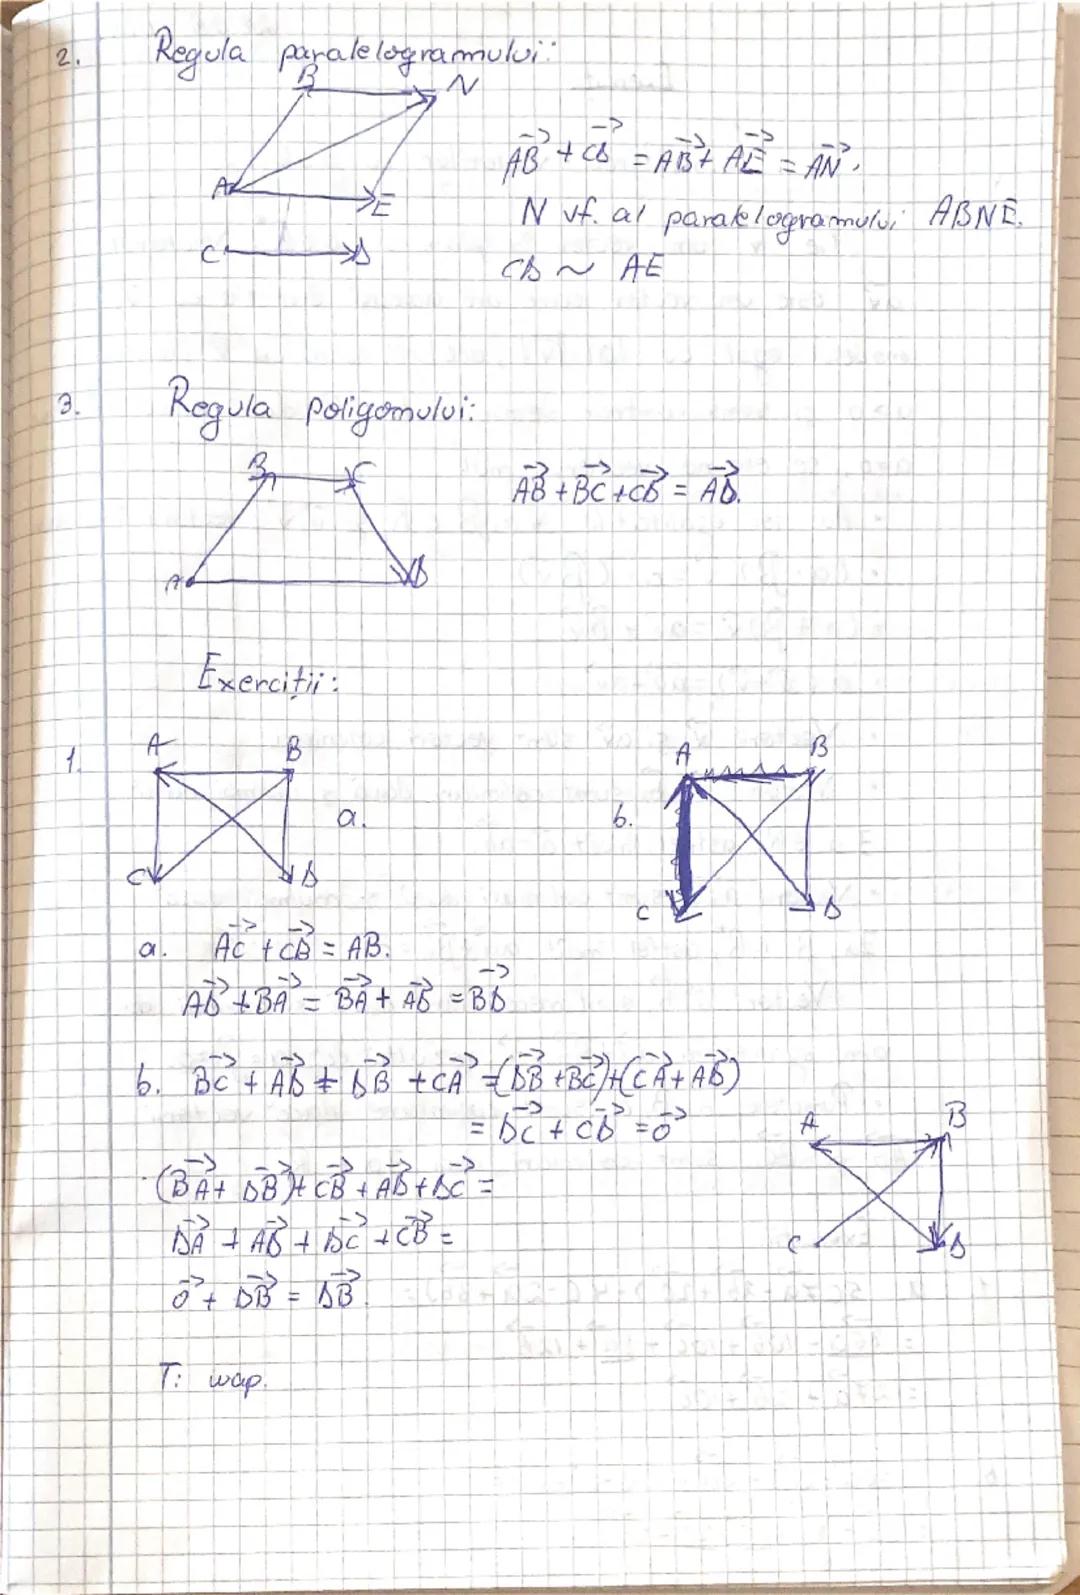 2. Regula paralelogramului:
B N
A E
C D
AB + CD = AB + AE = AN.
N vf. al paralelogramului ABNE.
CD ~ AE
3. Regula poligomului:
B C
A D
AB + BC + CD = AD.
Exerciții:
1. A B
C D
a.
b.
A B
C D
a. AC + CB = AB.
AD + BA = BA + AD = BD
b. BC + AD + DB + CA = (DB + BC) + (CA + AD)
= DC + CD = 0
A B
C D
(BA + DB) + CB + AD + DC =
DA + AD + DC + CB =
0 + DB = DB.
T: wap.